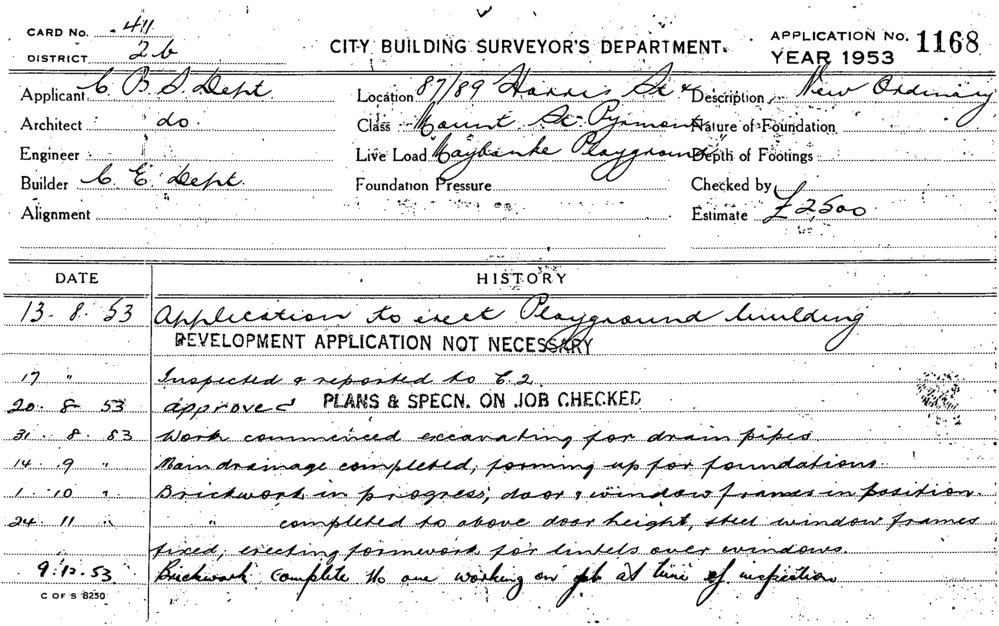 CARD No. 411
DISTRICT 26
CITY BUILDING SURVEYOR'S DEPARTMENT.
APPLICATION No. 1168
YEAR 1953
Applicant C. B. S. Dept. Location 87/89 Harris St & Description New Ordinary
Architect do. Class Mount St Pyrmont Nature of Foundation
Engineer Live Load Maybanke Playground Depth of Footings
Builder C. E. Dept. Foundation Pressure Checked by
Alignment Estimate £2,500
DATE HISTORY
13. 8. 53 Application to erect Playground building
DEVELOPMENT APPLICATION NOT NECESSARY
17 " Inspected & reported to C.2.
20. 8 53 approved PLANS & SPECN. ON JOB CHECKED
31. 8. 53 Work commenced excavating for drain pipes
14. 9 " Main drainage completed, forming up for foundations.
1. 10 " Brickwork in progress, door & window frames in position.
24. 11 " " completed to above door height, steel window frames
fixed, erecting formwork for lintels over windows.
9.12.53 Brickwork complete No one working on job at time of inspection
C OF S 8250